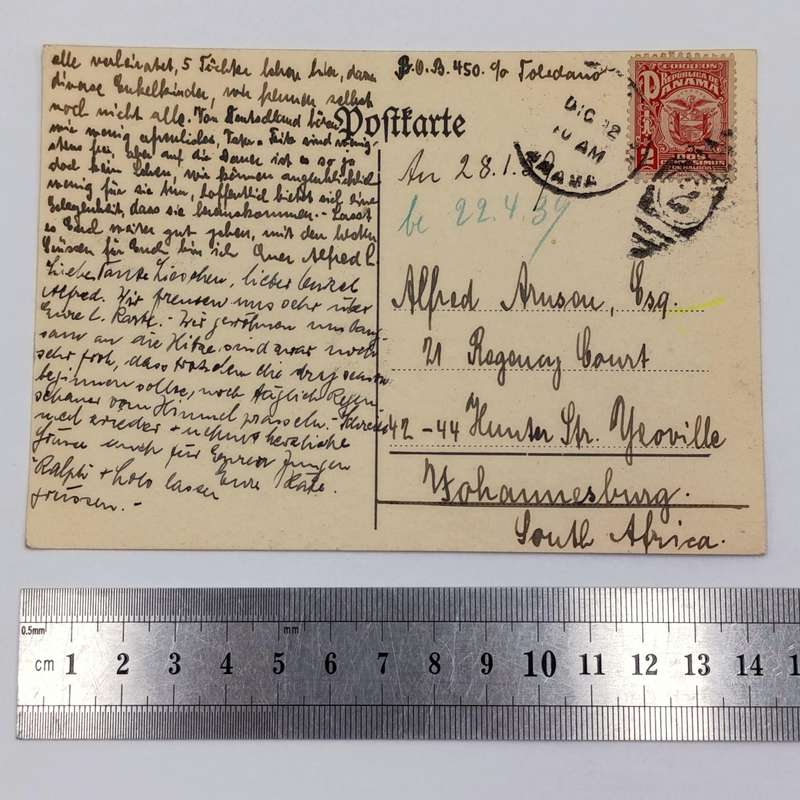 alle verheiratet, 5 Töchter leben hier, dann
diverse Enkelkinder, wir kennen selbst
noch nicht alle. Von Deutschland hören
wir wenig erfreuliches, Fritz sind wenig-
stens frei, aber auf die Dauer ist es so ja
doch kein Leben, wir können augenblicklich
wenig für sie tun, hoffentlich bietet sich eine
Gelegenheit, dass sie herauskommen. - Lasst
es Euch weiter gut gehen, mit den besten
Grüssen für Euch bin ich Euer Alfred C.
Liebe Tante Lieschen, lieber Onkel
Alfred. Wir freuten uns sehr über
Eure l. Karte. - Wir gewöhnen uns lang-
sam an die Hitze, sind zwar noch
sehr froh, dass trotzdem die dry season
beginnen sollte, noch täglich Regen
schauer vom Himmel prasseln. - Schreibt
mal wieder + nehmt herzliche
Grüsse auch für Eure Jungen
Eure Käte.
Ralph + Lolo lassen
grüssen. -
P.O.B. 450. c/o Toledano
Postkarte
DIC 22
10 AM
PANAMA
CORREOS
REPÚBLICA DE
PANAMA
2
DOS
CENTESIMOS
DE BALBOA
An 28.1.39
be 22.4.39
Alfred Arnson, Esq.
21 Regency Court
42-44 Hunter Str. Yeoville
Johannesburg.
South Africa.
0.5mm
mm
cm 1 2 3 4 5 6 7 8 9 10 11 12 13 14